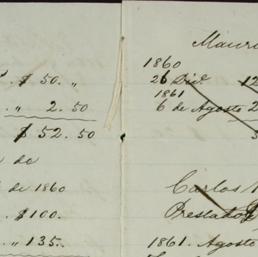 $ 50. "
" 2. 50
$ 52. 50
de
de 1860
$100.
" 135.
Mauri
1860
26 Dic 12
1861
6 de Agosto 2
Carlos
Prestado
1861. Agosto